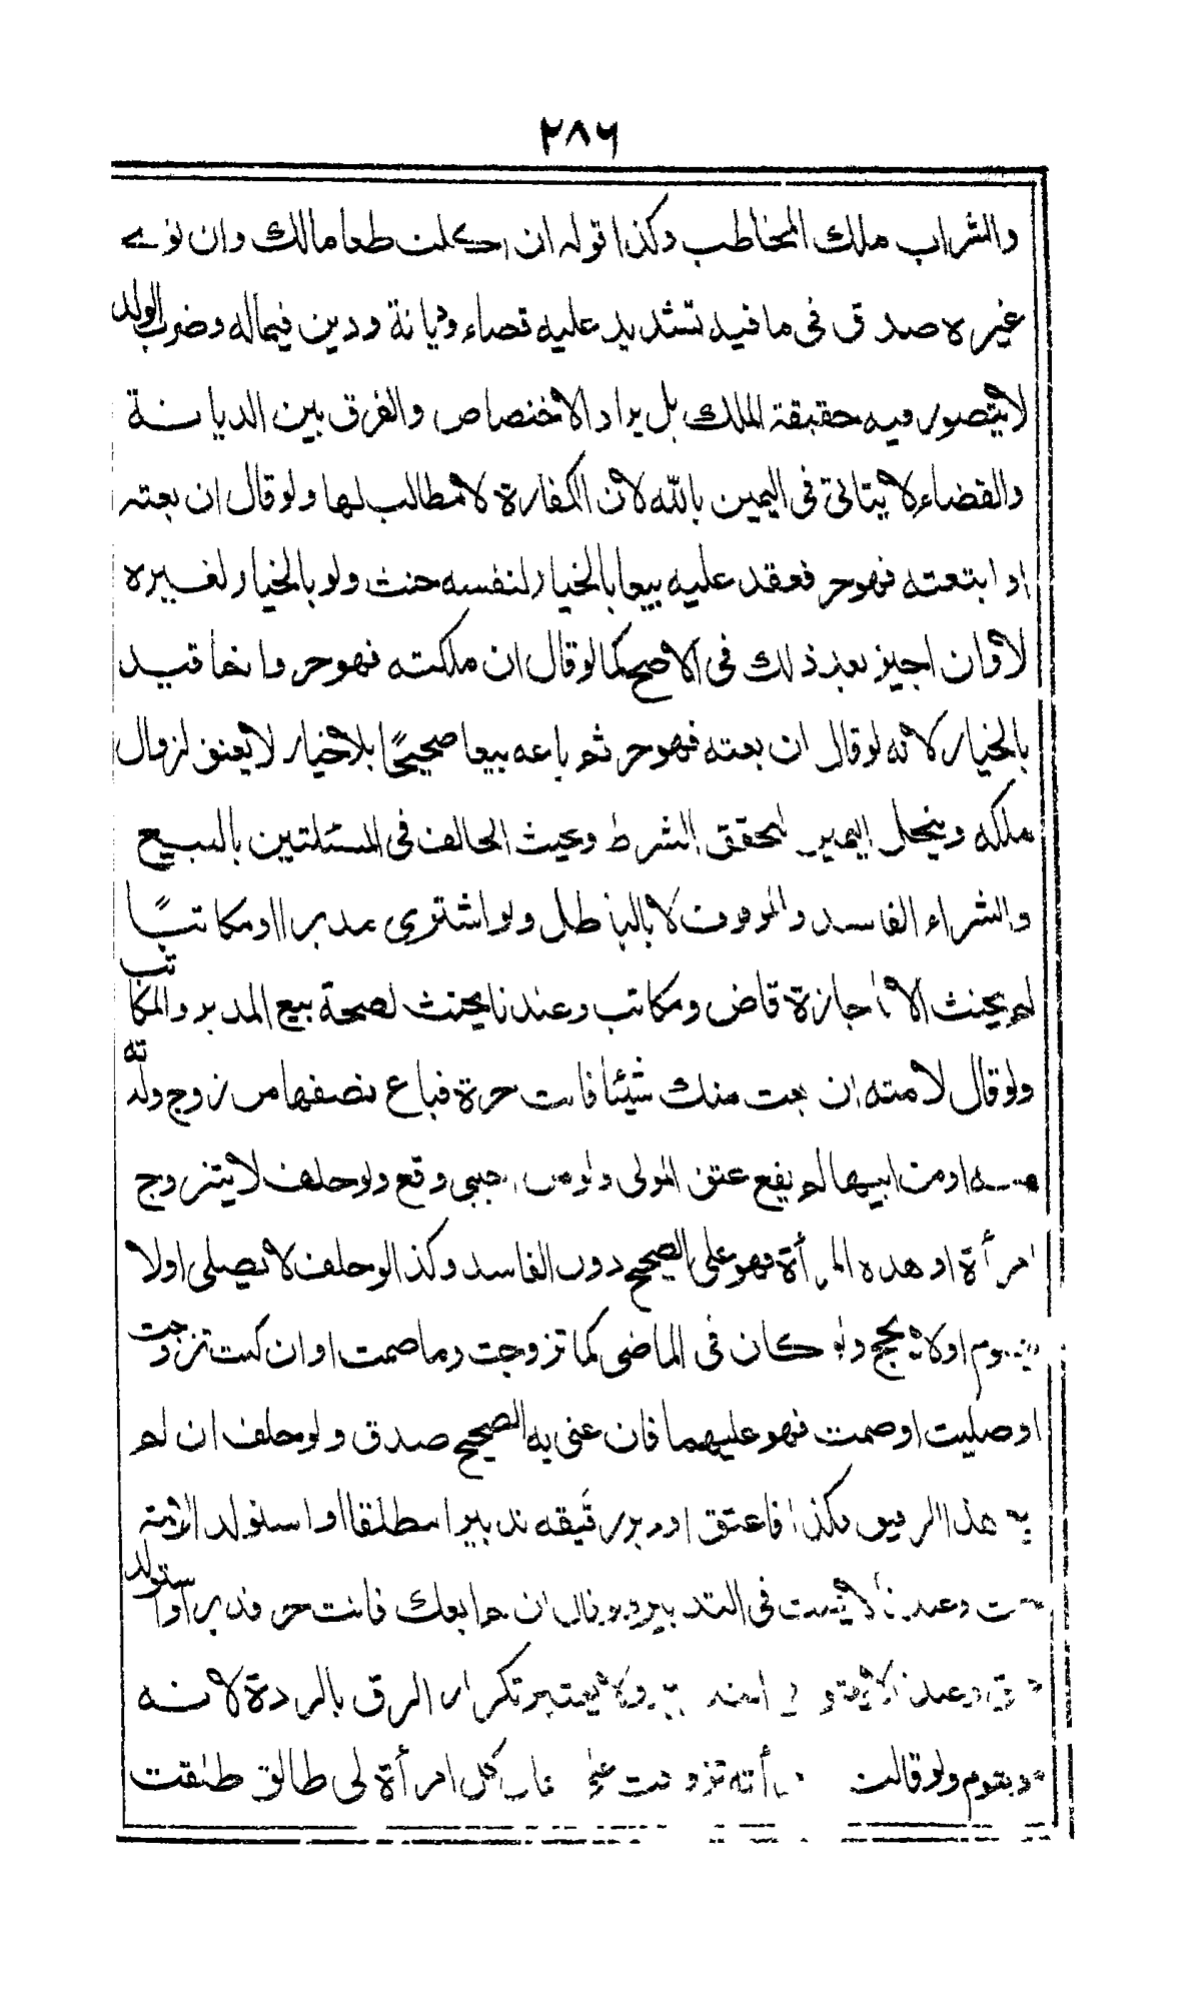 ٢٨٦
والشراب ملك المخاطب وكذا قوله ان اكلت طعاما لك وان نوى
غيره صدق فى ما فيه تشديد عليه قضاء وديانة ودين فيما له وضرب الولد
لا يتصور فيه حقيقة الملك بل يراد الاختصاص والفرق بين الديانة
والقضاء لا يتاتى فى اليمين بالله لان الكفارة لا مطالب لها ولو قال ان بعته
او ابتعته فهو حر فعقد عليه بيعا بالخيار لنفسه حنث ولو بالخيار لغيره
لا وان اجيز بعد ذلك فى الاصح كما لو قال ان ملكته فهو حر وانما قيد
بالخيار لانه لو قال ان بعته فهو حر ثم باعه بيعا صحيحًا بلا خيار لا يعتق لزوال
ملكه وينحل اليمين لتحقق الشرط ويحنث الحالف فى المسئلتين بالبيع
والشراء الفاسد والموقوف لا بالباطل ولو اشترى مدبرا او مكاتبًا
لم يحنث الا باجازة قاض ومكاتب وعندنا يحنث لصحة بيع المدبر والمكاتب
ولو قال لامته ان بعت منك شيئا فانت حرة فباع نصفها من زوج ولدته
منه او من ابيها لم يقع عتق المولى ولو من اجنبى وقع ولو حلف لا يتزوج
امرأة او هذه المرأة فهو على الصحيح دون الفاسد وكذا لو حلف لا يصلى اولا
يصوم اولا يحج ولو كان فى الماضى كما تزوجت وما صمت او ان كنت تزوجت
او صليت او صمت فهو عليهما فان عنى به الصحيح صدق ولو حلف ان لم
هذا الرقيق فكذا فاعتق او دبر رقيقه تدبيرا مطلقا او استولد الامة
وعندنا لا يحنث فى التدبير ولو قال ان لم ابعك فانت حر فدبر او استولد
وعندنا لا يعتق فى ولا يعتبر تكرار الرق بالردة لانه
موهوم ولو قالت امرأته تزوجت على فقال كل امرأة لى طالق طلقت